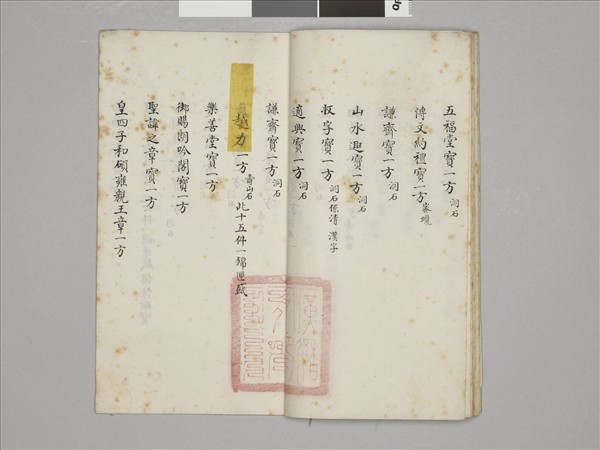 五福堂寶一方 洞石
博文約禮寶一方
謙齋寶一方 洞石
山水趣寶一方 洞石
寶一方 洞石 漢字
適興寶一方 洞石
謙齋寶一方 洞石
一方 壽山石 此十五件一錦匣盛
樂善堂寶一方
御賜朗吟閣寶一方
聖諱之章寶一方
皇四子和碩雍親王章一方